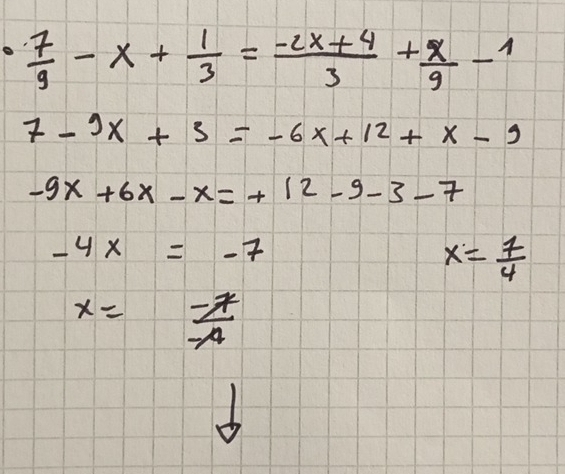 • 7/9 - x + 1/3 = (-2x+4)/3 + x/9 - 1
7 - 9x + 3 = -6x+12 + x - 9
-9x +6x -x= + 12 -9 -3 -7
-4x = -7 x= 7/4
x= -7/-4
↓